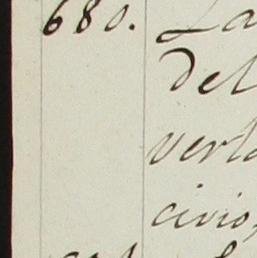 680. La
del
verta
civio,